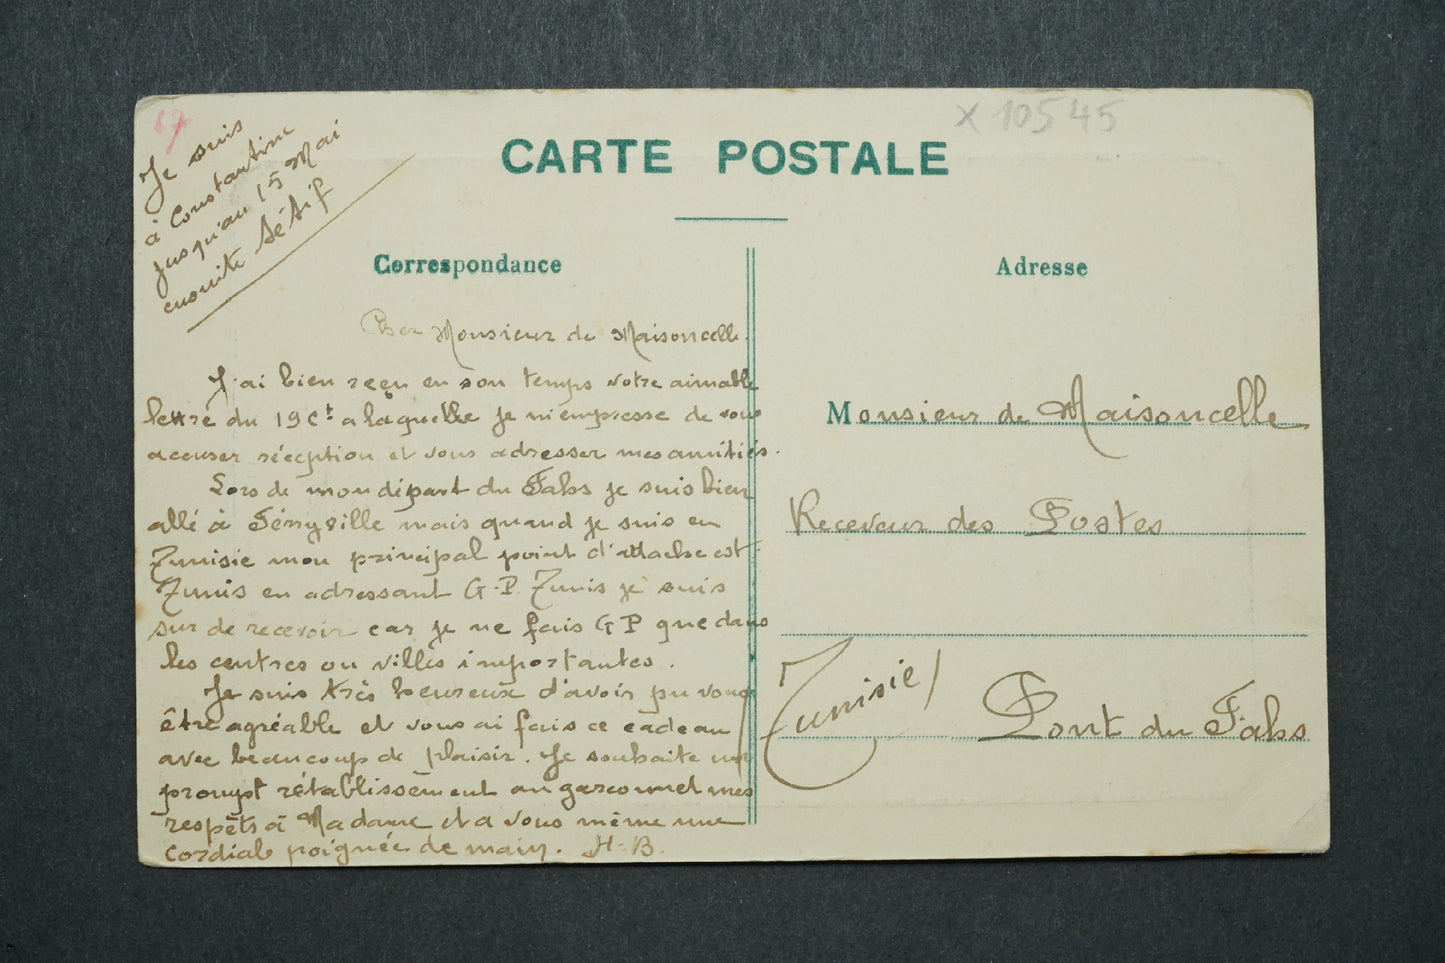 67
x 10545
Je suis
à Constantine
jusqu'au 15 Mai
ensuite Sétif
CARTE POSTALE
Correspondance
Cher Monsieur de Maisoncelle.
J'ai bien reçu en son temps votre aimable
lettre du 19 Ct a laquelle je m'empresse de vous
accuser réception et vous adresser mes amitiés.
Lors de mon départ du Fahs je suis bien
allé à Ferryville mais quand je suis en
Tunisie mon principal point d'attache est
Tunis en adressant G-P. Tunis je suis
sur de recevoir car je ne fais G P que dans
les centres ou villes importantes.
Je suis très heureux d'avoir pu vous
être agréable et vous ai fais ce cadeau
avec beaucoup de plaisir. Je souhaite un
prompt rétablissement au garconnet mes
respêts à Madame et a vous même une
cordiale poignée de main. H-B.
Adresse
Monsieur de Maisoncelle
Receveur des Postes
Pont du Fahs
Tunisie/